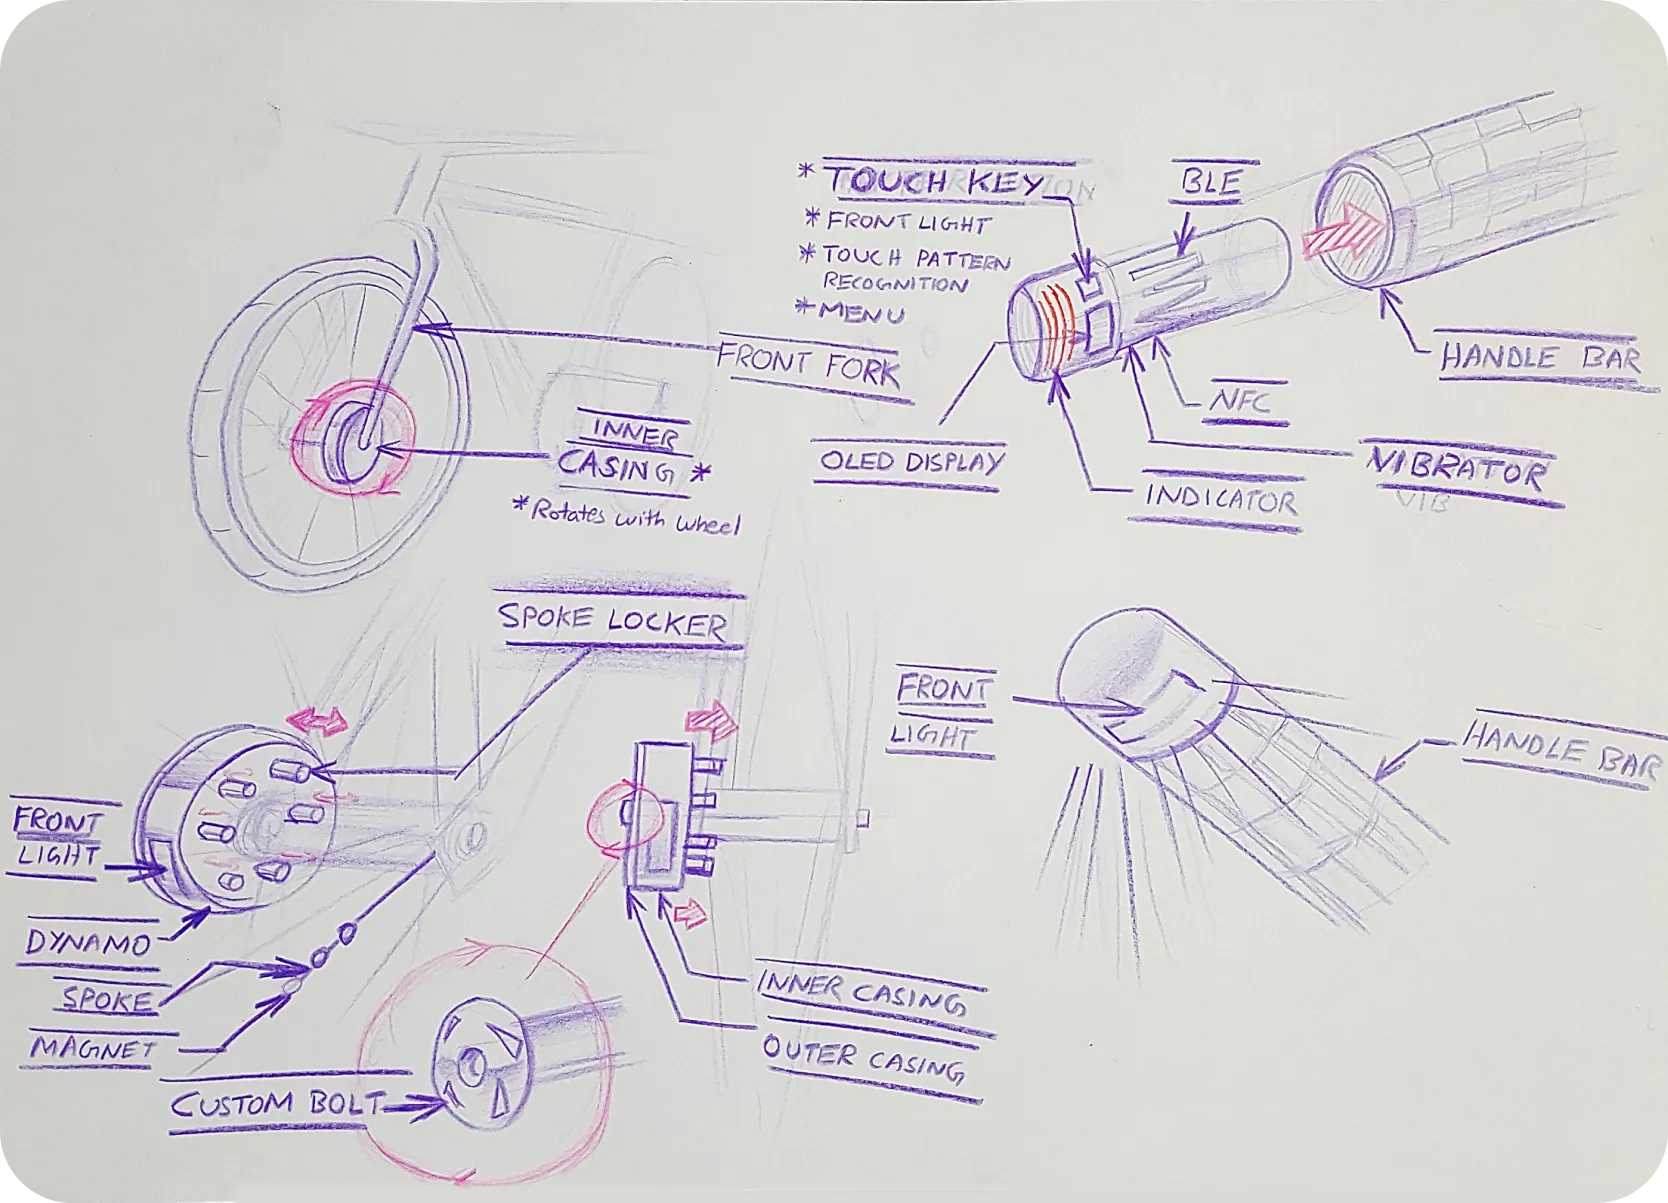 * TOUCH KEY
* FRONT LIGHT
* TOUCH PATTERN
RECOGNITION
* MENU
BLE
HANDLE BAR
FRONT FORK
NFC
OLED DISPLAY
INDICATOR
VIBRATOR
VIB
INNER
CASING *
* Rotates with wheel
SPOKE LOCKER
FRONT
LIGHT
DYNAMO
SPOKE
MAGNET
CUSTOM BOLT
INNER CASING
OUTER CASING
FRONT
LIGHT
HANDLE BAR